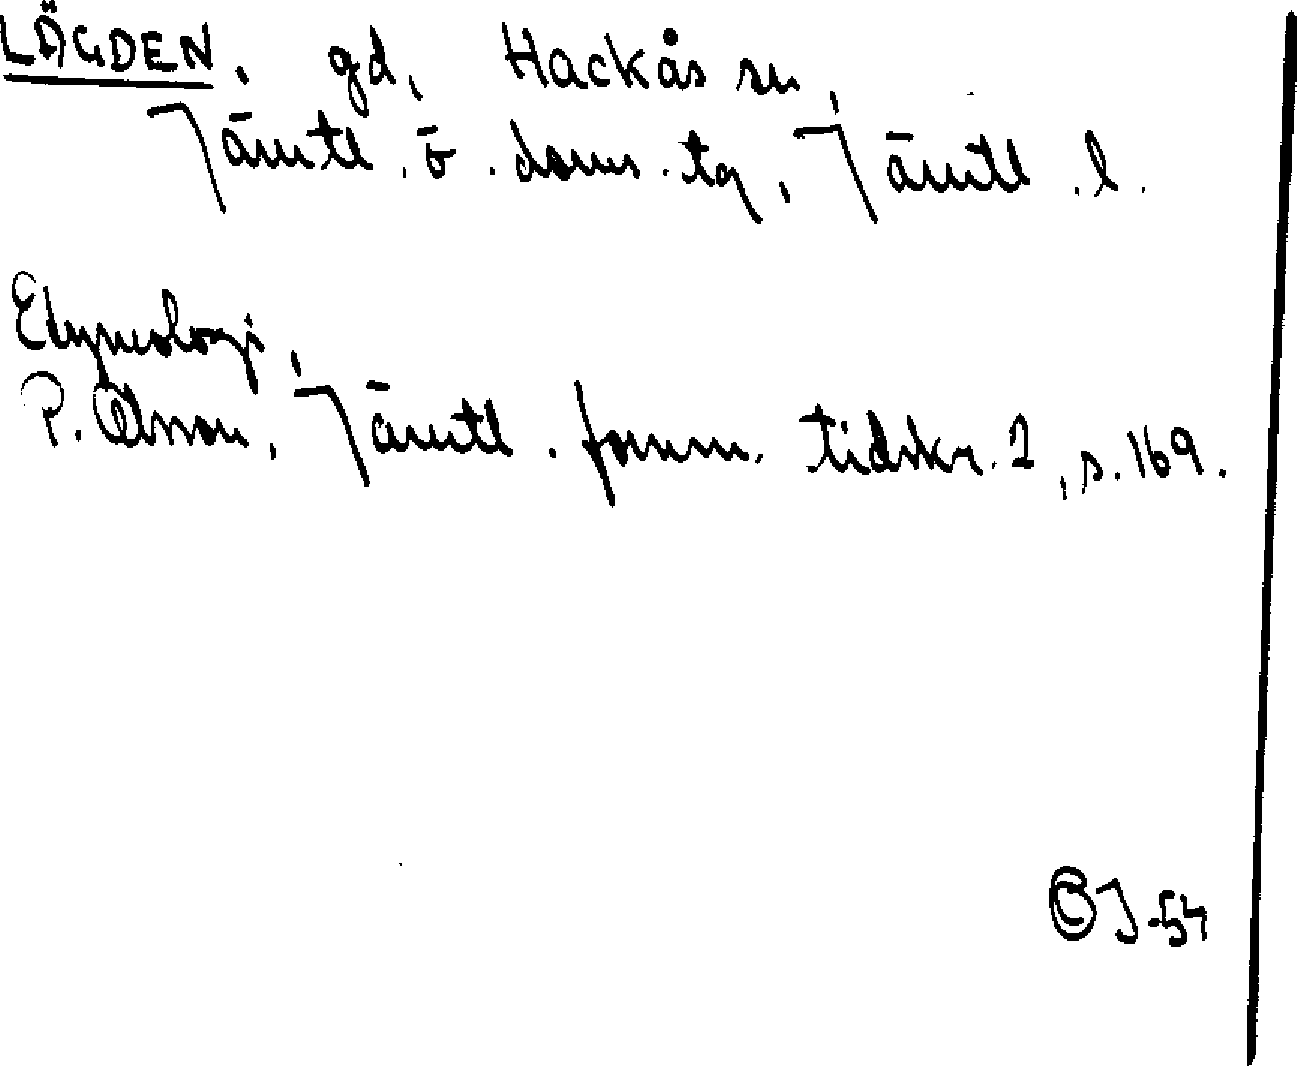 LÄGDEN, gd, Hackås sn,
Jämtl. ö. doms. tg, Jämtl. l.
Etymologi,
P. Olsson, Jämtl. fornm. tidskr. 2, s. 169.
J-54